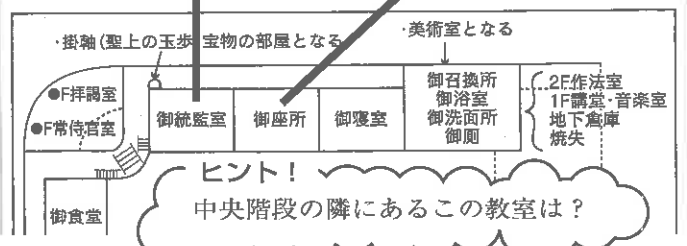 ・掛軸(聖上の玉歩 宝物の部屋となる
・美術室となる
●F拝謁室
●F常侍官室
御統監室
御座所
御寝室
御召換所
御浴室
御洗面所
御厠
2F作法室
1F講堂・音楽室
地下倉庫
焼失
御食堂
ヒント!
中央階段の隣にあるこの教室は?